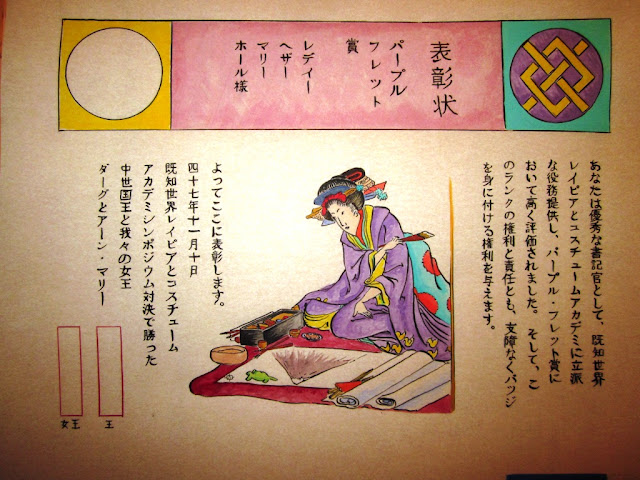 表彰状
パープル
フレット
賞
レディー
ヘザー
マリー
ホール様
あなたは優秀な書記官として、既知世界
レイピアとコスチュームアカデミに立派
な役務提供し、パープル・フレット賞に
おいて高く評価されました。そして、こ
のランクの権利と責任とも、支障なくバッジ
を身に付ける権利を与えます。
よってここに表彰します。
四十七年十一月十日
既知世界レイピアとコスチューム
アカデミシンポジウム対決で勝った
中世国王と我々の女王
ダーグとアーン・マリー
王
女王